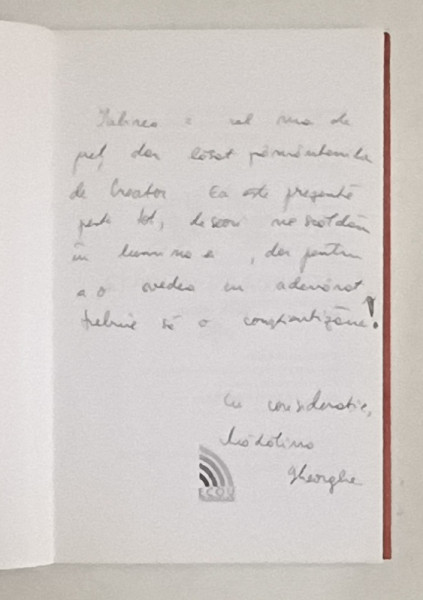 Iubirea = cel mai de
preț dar lăsat pământenilor
de Creator Ea este prezentă
peste tot, deseori ne scăldăm
în lumina ei, dar pentru
a o vedea cu adevărat
trebuie să o conștientizăm!
Cu considerație,
Mădălina
Gheorghe
ECOU